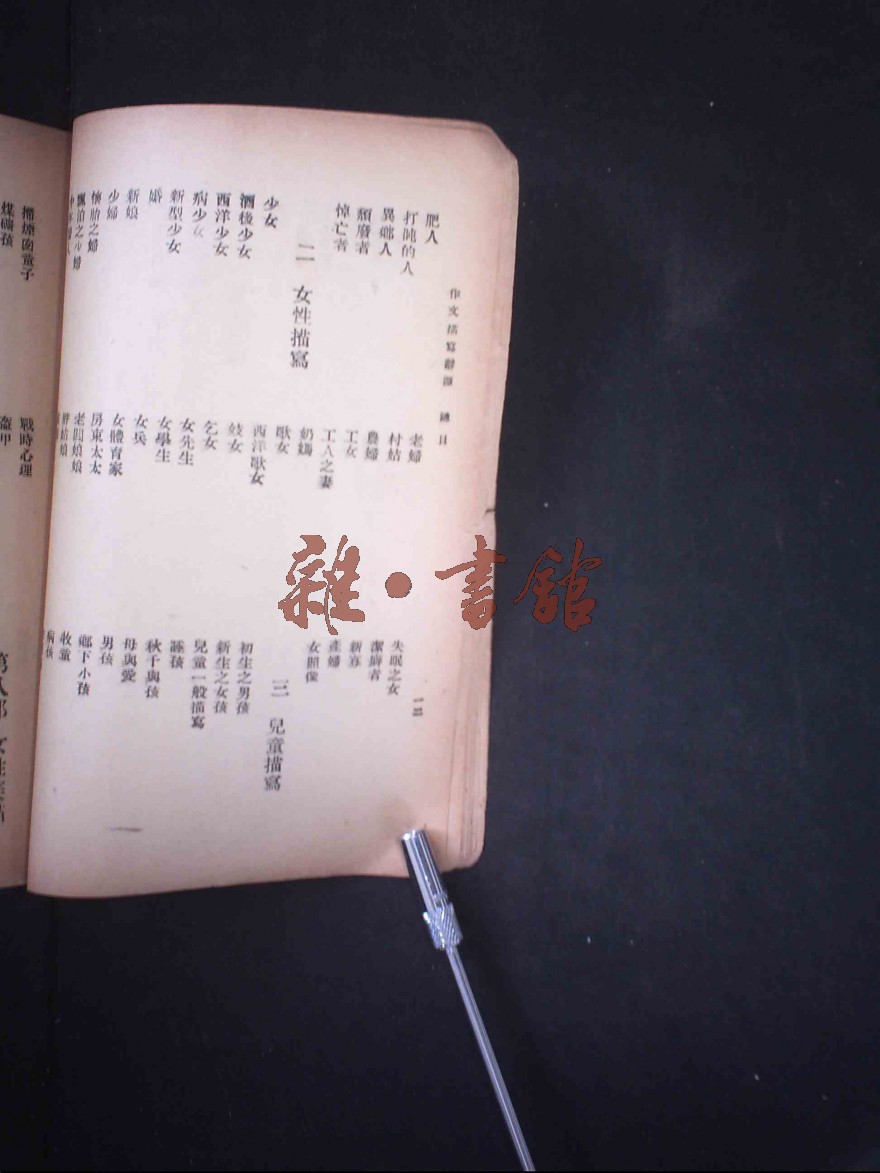 作文描寫辭源 總目
一三
肥人
打盹的人
異鄉人
頹廢者
悼亡者
二 女性描寫
少女
酒後少女
西洋少女
病少女
新型少女
婚
新娘
少婦
懷胎之婦
飄泊之少婦
老婦
村姑
農婦
工女
工人之妻
奶媽
歌女
西洋歌女
妓女
乞女
女先生
女學生
女兵
女體育家
房東太太
老闆娘娘
失眠之女
潔癖者
新寡
產婦
女照像
三 兒童描寫
初生之男孩
新生之女孩
兒童一般描寫
謎孩
秋千與孩
母與愛
男孩
鄉下小孩
牧童
病孩
掃煙囱童子
煤礦孩
戰時心理
盔甲
雜·書館